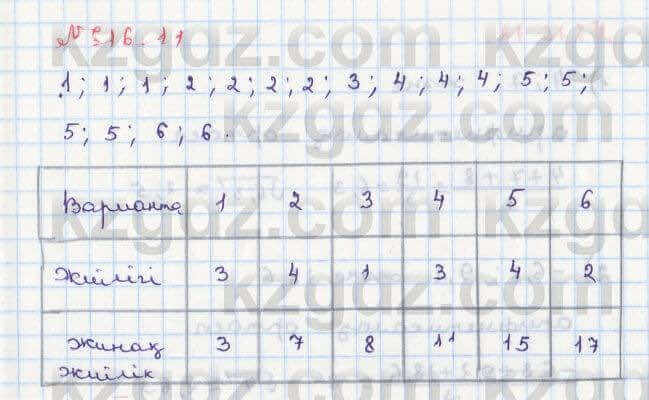 № 316.11
1; 1; 1; 2; 2; 2; 2; 3; 4; 4; 4; 5; 5;
5; 5; 6; 6.
Варианта 1 2 3 4 5 6
жиілігі 3 4 1 3 4 2
жинақ 3 7 8 11 15 17
жиілік
kzgdz.com
kzgdz.com
kzgdz.com
kzgdz.com